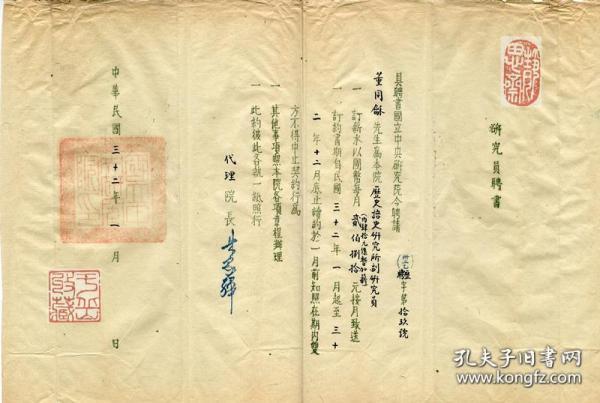 研究員聘書
字第拾玖號
具聘書國立中央研究院今聘請
董同龢先生為本院歷史語史研究所副研究員
一 訂薪水以國幣每月貳佰捌拾元按月致送
一 訂約書期自民國三十二年一月起至三十
二年十二月底止續約於一月前知照在期内雙
方不得中止契約行為
一 其他事項照本院各項章程辦理
一 此約彼此各執一紙照行
代理院長 朱家驊
中華民國三十二年一月 日
孔夫子旧书网
www.kongfz.com